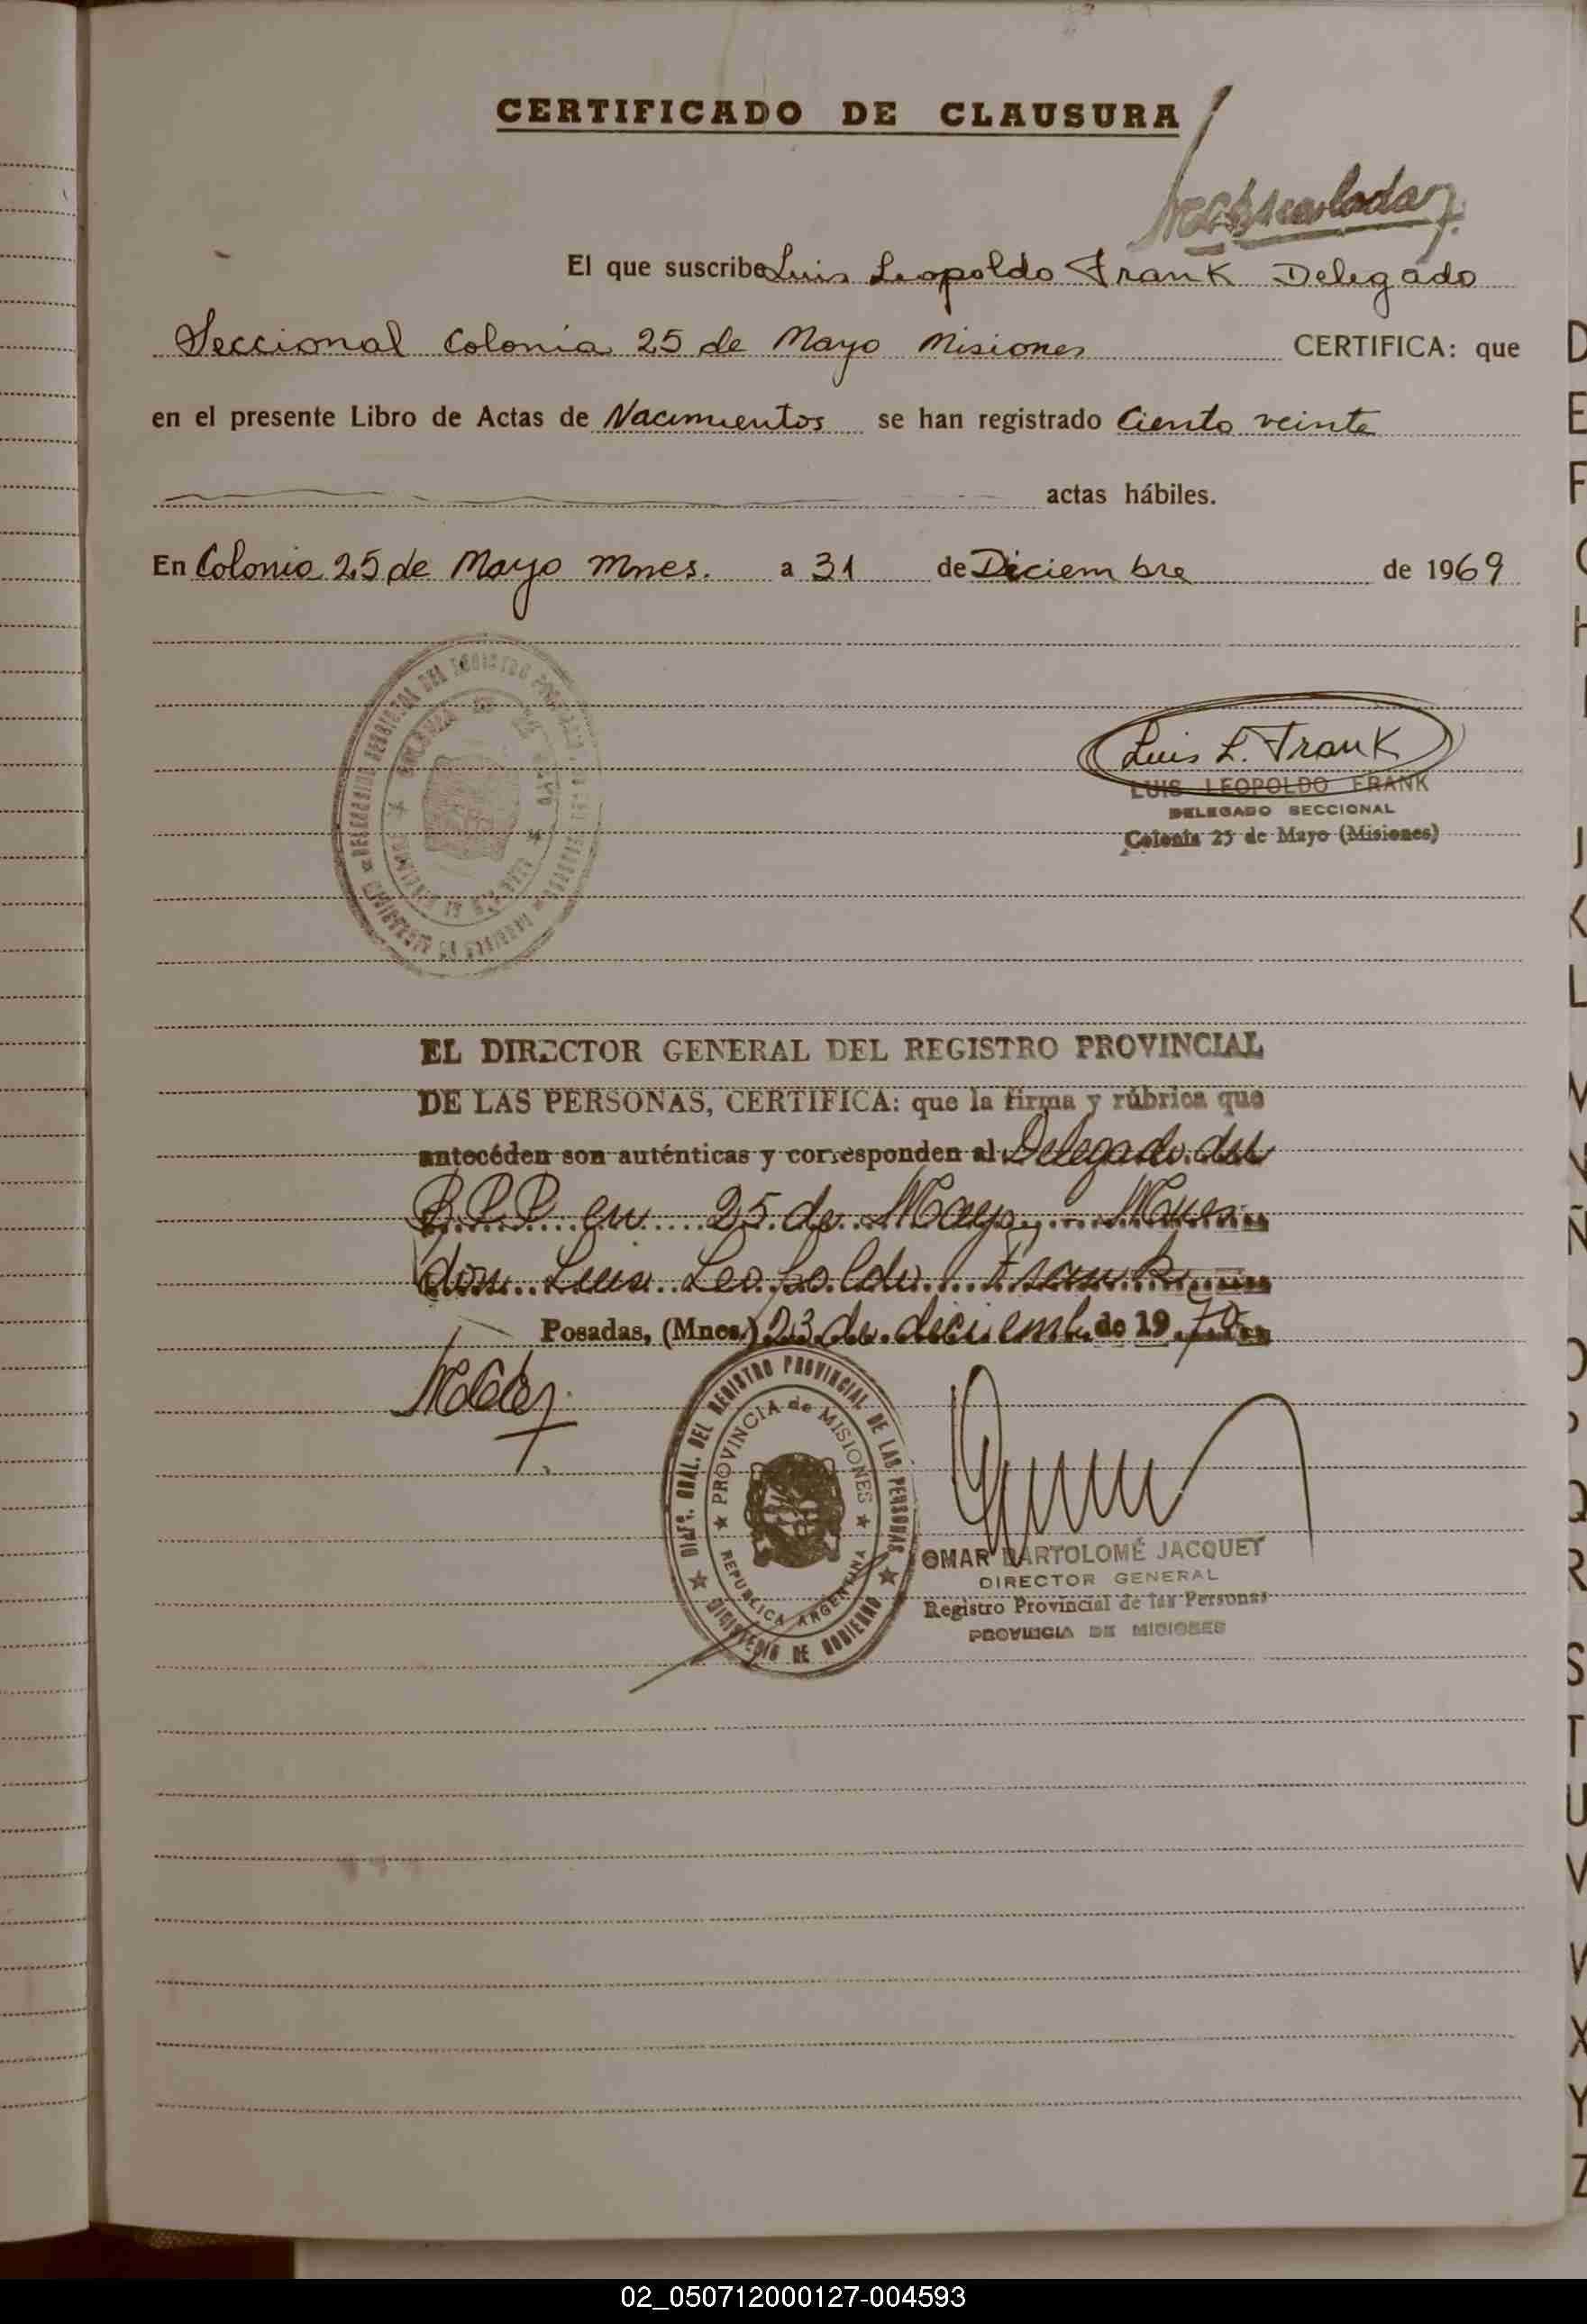 CERTIFICADO DE CLAUSURA
El que suscribe Luis Leopoldo Frank Delegado
Seccional Colonia 25 de Mayo Misiones CERTIFICA: que
en el presente Libro de Actas de Nacimientos se han registrado Ciento veinte
actas hábiles.
En Colonia 25 de Mayo Mnes. a 31 de Diciembre de 1969
Luis L. Frank
LUIS LEOPOLDO FRANK
DELEGADO SECCIONAL
Colonia 25 de Mayo (Misiones)
EL DIRECTOR GENERAL DEL REGISTRO PROVINCIAL
DE LAS PERSONAS, CERTIFICA: que la firma y rúbrica que
antecéden son auténticas y corresponden al Delegado del
R.P.P. en 25 de Mayo, Mnes
don Luis Leopoldo Frank
Posadas, (Mnes.) 23 de diciemb. de 1970
DIREC. GRAL. DEL REGISTRO PROVINCIAL DE LAS PERSONAS
PROVINCIA de MISIONES
REPUBLICA ARGENTINA
MINISTERIO DE GOBIERNO
OMAR BARTOLOMÉ JACQUET
DIRECTOR GENERAL
Registro Provincial de las Personas
PROVINCIA DE MISIONES
D
E
F
G
H
I
J
K
L
M
N
Ñ
O
P
Q
R
S
T
U
V
W
X
Y
Z
02_050712000127-004593